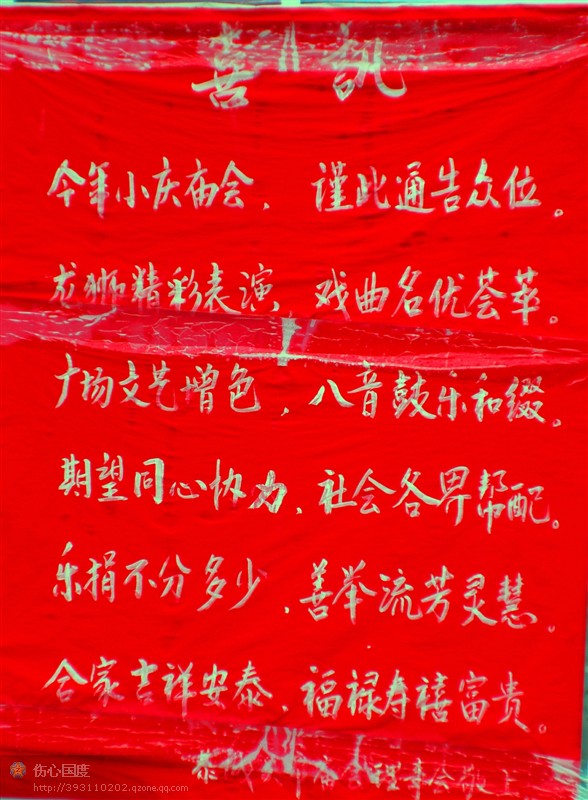 喜讯
今年小庆庙会，谨此通告众位。
龙狮精彩表演，戏曲名优荟萃。
广场文艺增色，八音鼓乐和缀。
期望同心协力，社会各界帮配。
乐捐不分多少，善举流芳灵慧。
合家吉祥安泰，福禄寿禧富贵。
伤心国度
http://393110202.qzone.qq.com